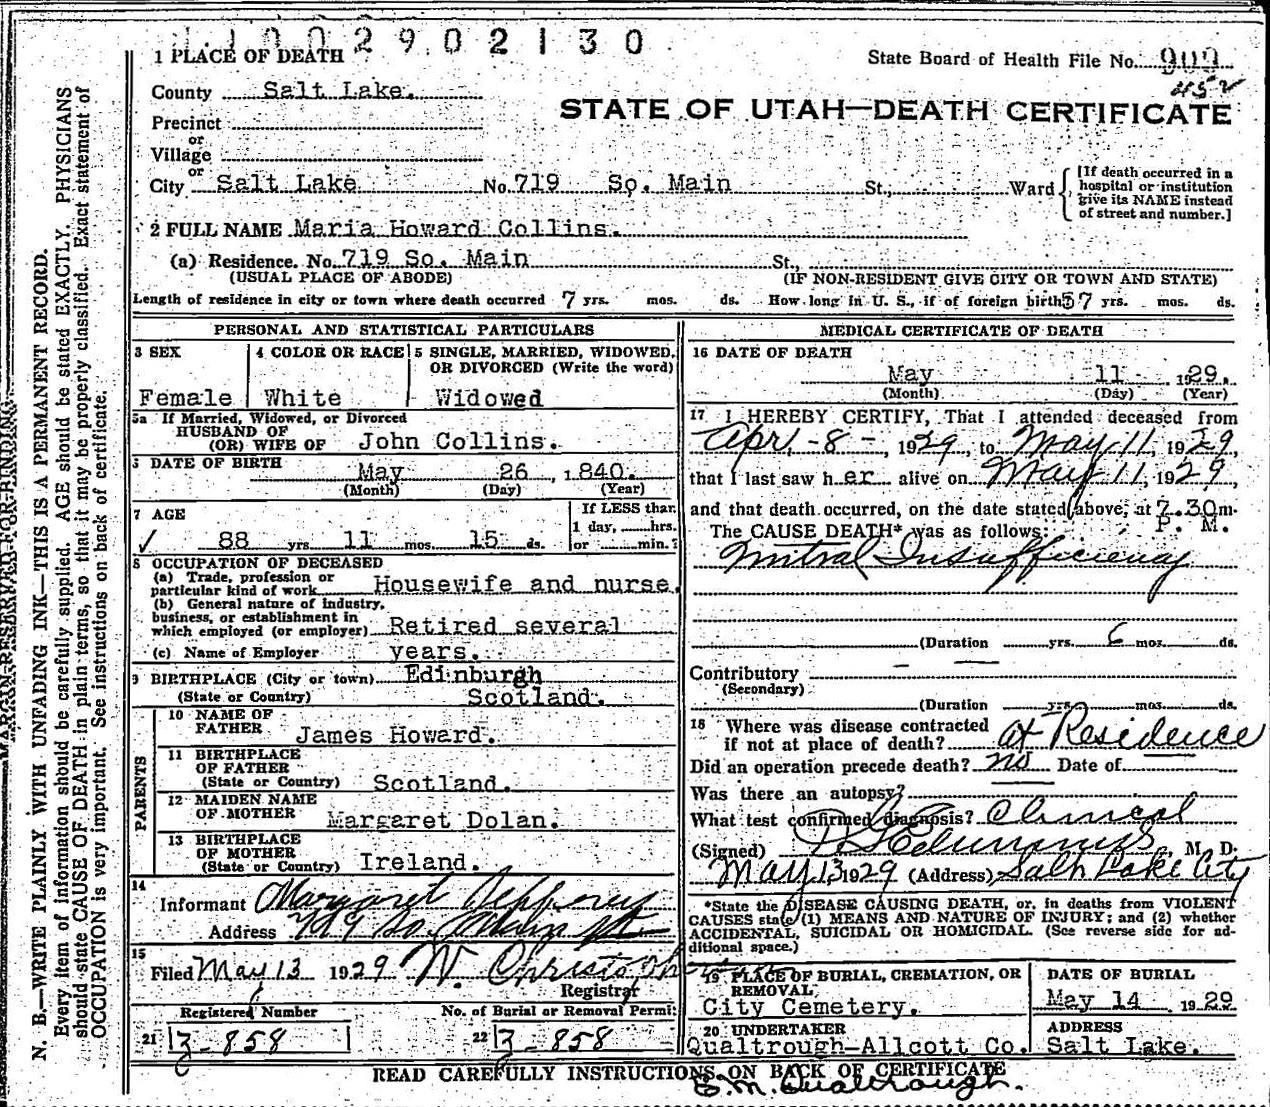 11002902130
1 PLACE OF DEATH
State Board of Health File No. 909
452
County Salt Lake.
STATE OF UTAH—DEATH CERTIFICATE
Precinct
or
Village
or
City Salt Lake No. 719 So. Main St., Ward
[If death occurred in a hospital or institution give its NAME instead of street and number.]
2 FULL NAME Maria Howard Collins.
(a) Residence. No. 719 So. Main St.,
(USUAL PLACE OF ABODE) (IF NON-RESIDENT GIVE CITY OR TOWN AND STATE)
Length of residence in city or town where death occurred 7 yrs. mos. ds. How long in U. S., if of foreign birth 57 yrs. mos. ds.
PERSONAL AND STATISTICAL PARTICULARS
3 SEX
Female
4 COLOR OR RACE
White
5 SINGLE, MARRIED, WIDOWED, OR DIVORCED (Write the word)
Widowed
5a If Married, Widowed, or Divorced
HUSBAND OF
(OR) WIFE OF John Collins.
DATE OF BIRTH
May 26, 1840.
(Month) (Day) (Year)
7 AGE
✓ 88 yrs. 11 mos. 15 ds.
If LESS than
1 day, hrs.
or min.?
8 OCCUPATION OF DECEASED
(a) Trade, profession or
particular kind of work Housewife and nurse.
(b) General nature of industry,
business, or establishment in
which employed (or employer) Retired several
(c) Name of Employer years.
9 BIRTHPLACE (City or town) Edinburgh
(State or Country) Scotland.
PARENTS
10 NAME OF
FATHER James Howard.
11 BIRTHPLACE
OF FATHER
(State or Country) Scotland.
12 MAIDEN NAME
OF MOTHER Margaret Dolan.
13 BIRTHPLACE
OF MOTHER
(State or Country) Ireland.
14
Informant Margaret
Address 719 So. Main St
15
Filed May 13 1929 W. Christo
Registrar
Registered Number
21 3-858
No. of Burial or Removal Permit
22 3-858
MEDICAL CERTIFICATE OF DEATH
16 DATE OF DEATH
May 11 1929.
(Month) (Day) (Year)
17 I HEREBY CERTIFY, That I attended deceased from
Apr. -8-, 1929, to May 11, 1929,
that I last saw her alive on May 11, 1929,
and that death occurred, on the date stated above, at 7.30 m.
P. M.
The CAUSE DEATH* was as follows:
Mitral Insufficiency
(Duration yrs. 6 mos. ds.
Contributory — —
(Secondary)
(Duration yrs. mos. ds.
18 Where was disease contracted
if not at place of death? at Residence
Did an operation precede death? no Date of
Was there an autopsy?
What test confirmed diagnosis? Clinical
(Signed) M. D.
May 13, 1929 (Address) Salt Lake City
*State the DISEASE CAUSING DEATH, or, in deaths from VIOLENT
CAUSES state (1) MEANS AND NATURE OF INJURY; and (2) whether
ACCIDENTAL, SUICIDAL OR HOMICIDAL. (See reverse side for ad-
ditional space.)
19 PLACE OF BURIAL, CREMATION, OR
REMOVAL
City Cemetery.
DATE OF BURIAL
May 14 1929
20 UNDERTAKER
Qualtrough-Allcott Co.
ADDRESS
Salt Lake.
READ CAREFULLY INSTRUCTIONS ON BACK OF CERTIFICATE
E. M. Qualtrough.
MARGIN RESERVED FOR BINDING
N. B.—WRITE PLAINLY WITH UNFADING INK—THIS IS A PERMANENT RECORD.
Every item of information should be carefully supplied. AGE should be stated EXACTLY. PHYSICIANS
should state CAUSE OF DEATH in plain terms, so that it may be properly classified. Exact statement of
OCCUPATION is very important. See instructions on back of certificate.